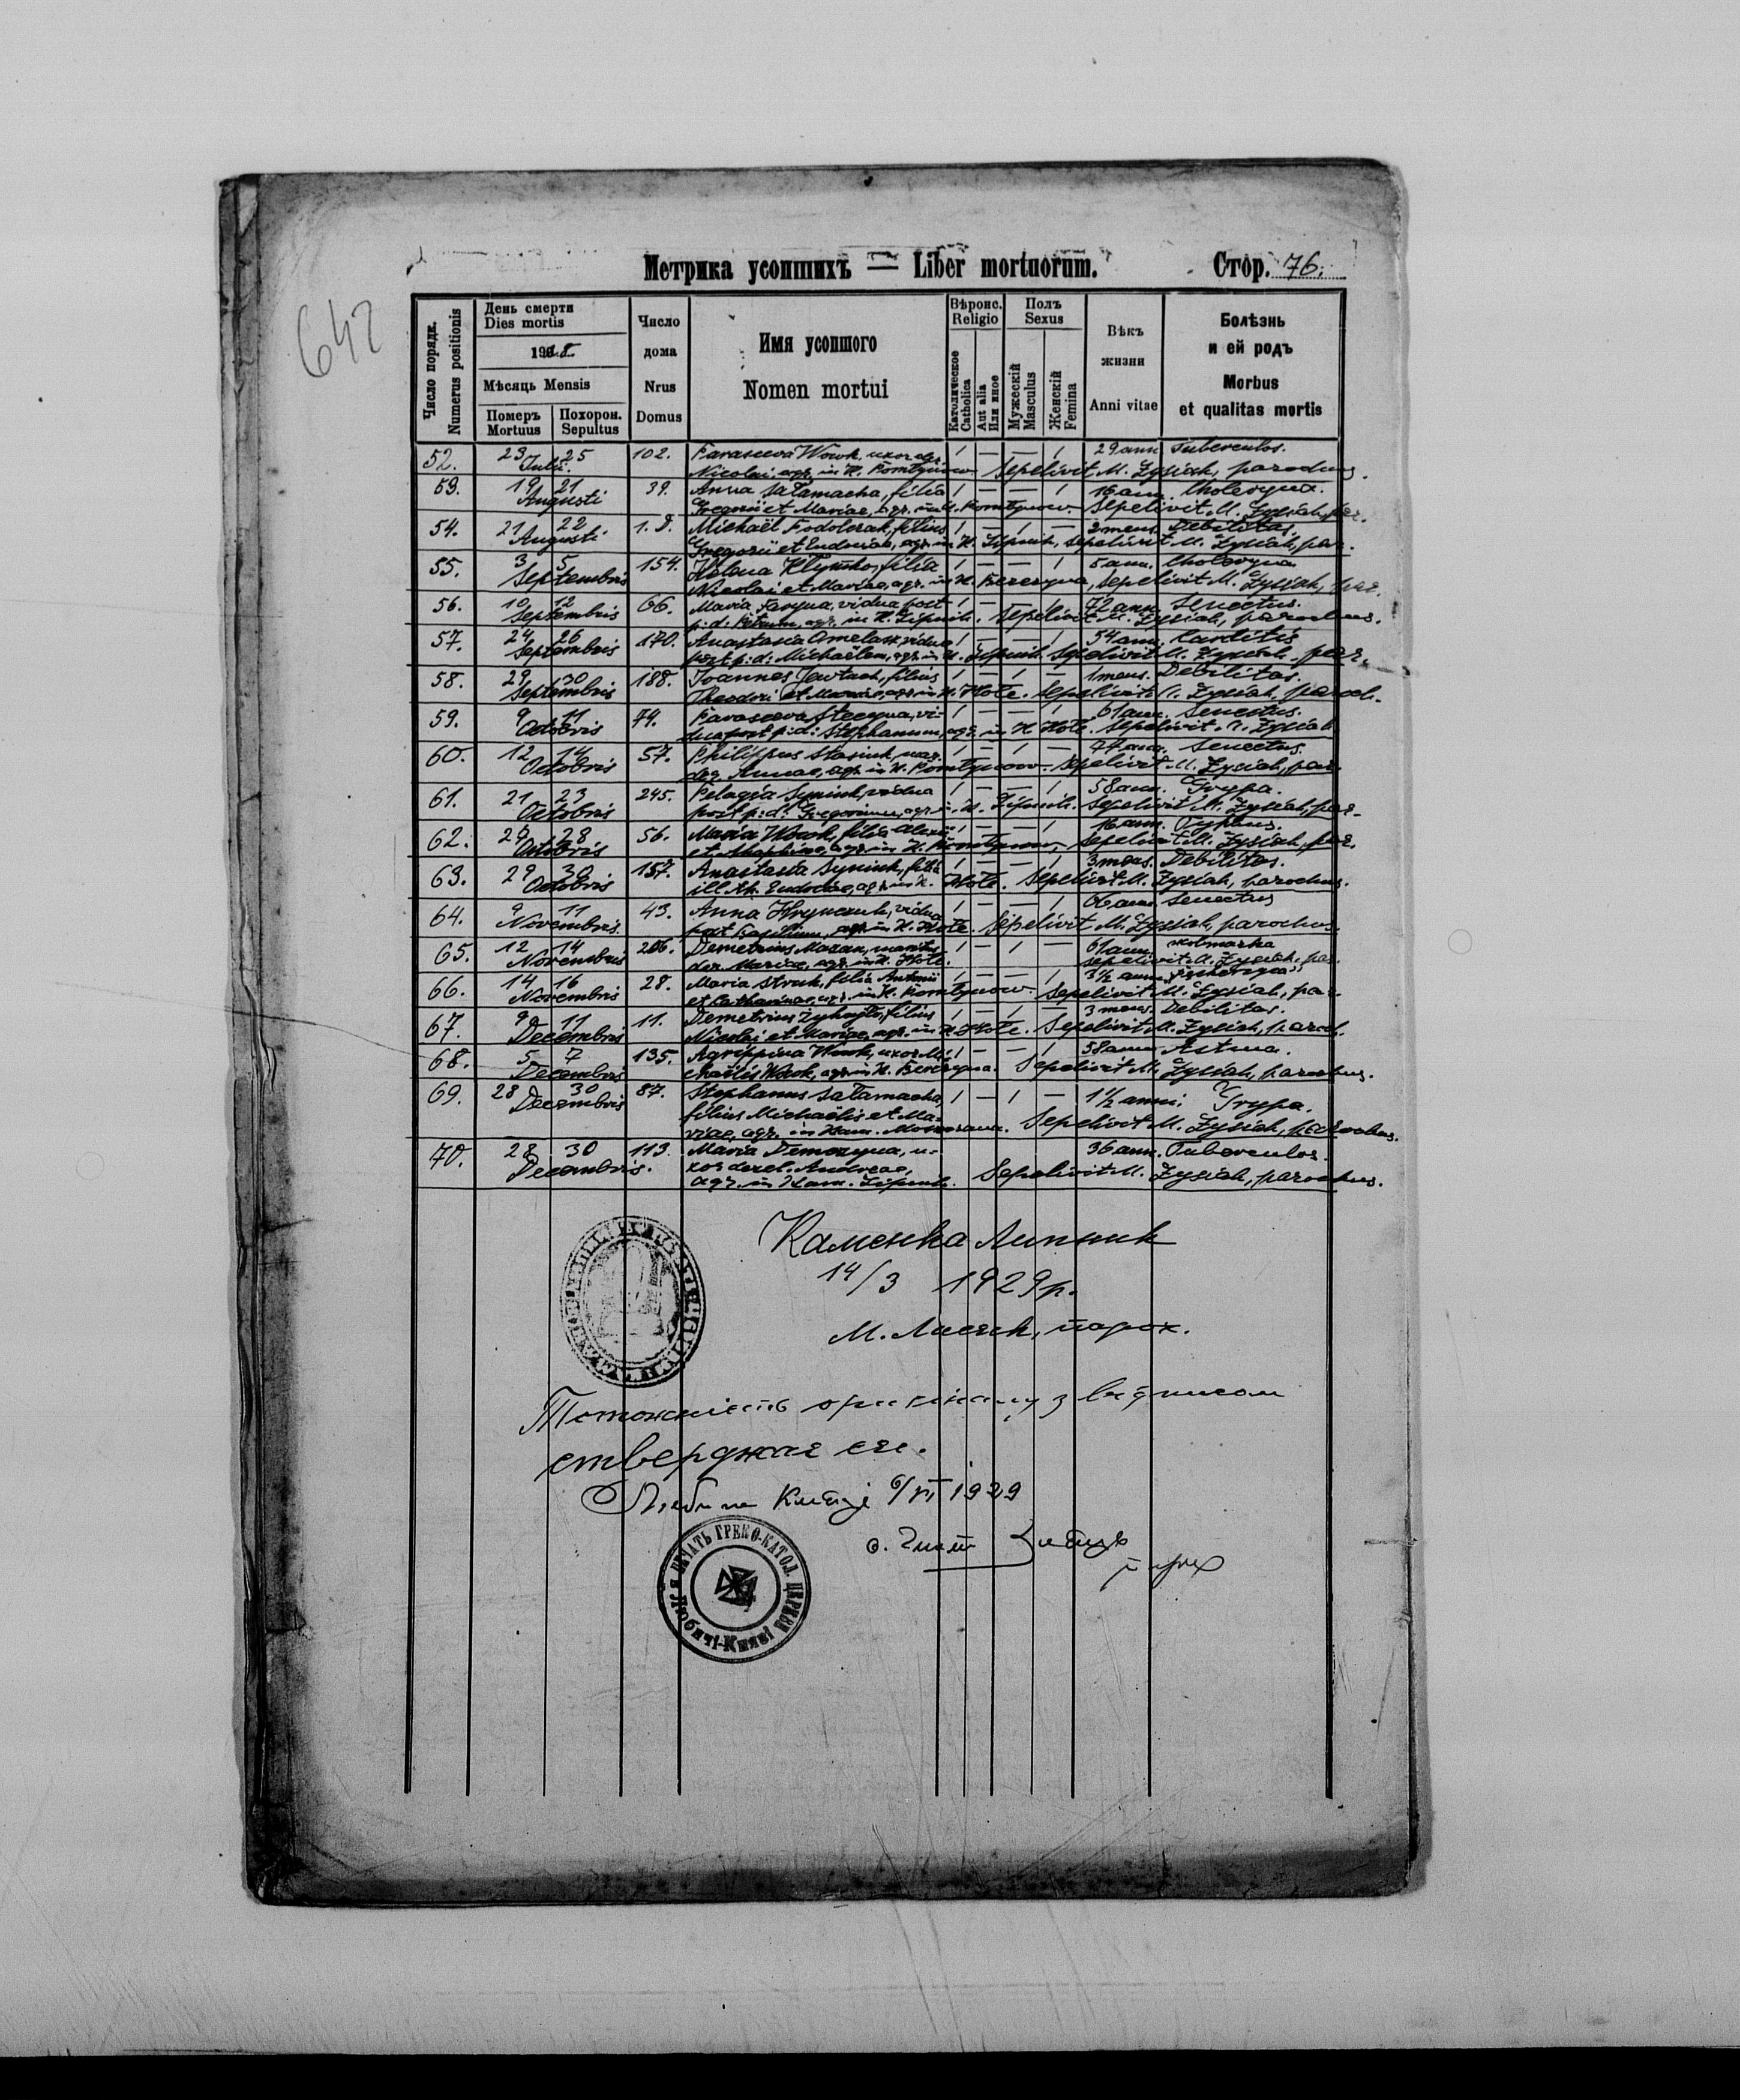 642
Метрика усопшихъ — Liber mortuorum.
Стор. 76.
Число порядк.
Numerus positionis
День смерти
Dies mortis
1918
Мѣсяць Mensis
Померъ Похорон.
Mortuus Sepultus
Число
дома
Nrus
Domus
Имя усопшого
Nomen mortui
Вѣроис.
Religio
Католическое
Catholica
Aut alia
Или иное
Полъ
Sexus
Мужескій
Masculus
Женскій
Femina
Вѣкъ
жизни
Anni vitae
Болѣзнь
и ей родъ
Morbus
et qualitas mortis
52. 23 25 102. Parasceva Wowk, uxor agr. 1 — — 1 29 ann. Tuberculos.
Julii. Nicolai, agr. in K. Sepelivit M. Łysiak, parochus.
53. 19 21 39. Anna Sałamacha, filia 1 — — 1 16 ann.
Augusti Gregorii et Mariae, agr. in K. Sepelivit M. Łysiak, par.
54. 21 22 1. Michaël Fodolczak, filius 1 — 1 — 2 mens. Debilitas.
Augusti Gregorii et Eudociae, agr. in K. Lipnik, sepelivit M. Łysiak, par.
55. 3 5 154. Helena Klymko, filia 1 — — 1 5 ann.
Septembris Nicolai et Mariae, agr. in K. Berezyna, sepelivit M. Łysiak, par.
56. 10 12 66. Maria vidua post 1 — — 1 72 ann. Senectus.
Septembris p: d: Petrum, agr. in K. Lipnik. Sepelivit M. Łysiak, parochus.
57. 24 26 170. Anastasia vidua 1 — — 1 54 ann. Carditis
Septembris post p: d: Michaëlem, agr. in K. Lipnik. Sepelivit M. Łysiak, par.
58. 29 30 188. Joannes Jawtuch, filius 1 — 1 — 1 mens. Debilitas.
Septembris Theodori et Mariae, agr. in K. Hole. Sepelivit M. Łysiak, paroch.
59. 9 11 74. Parasceva Stecyna, vi- 1 — — 1 61 ann. Senectus.
Octobris dua post p: d: Stephanum, agr. in K. Hole. Sepelivit M. Łysiak
60. 12 14 57. Philippus Stasiuk, 1 — 1 — 74 ann. Senectus.
Octobris Annae, agr. in K. Sepelivit M. Łysiak, par.
61. 21 23 245. Pelagia Syniuk, vidua 1 — — 1 58 ann. Grypa.
Octobris post p: d: Gregorium, agr. in K. Lipnik. Sepelivit M. Łysiak, par.
62. 28 56. Maria Wowk, filia Alexii 1 — — 1 16 ann. Typhus.
Octobris agr. in K. Sepelivit M. Łysiak, par.
63. 29 30 157. Anastasia Syniuk, filia 1 — — 1 3 mens. Debilitas.
Octobris ill. th. Eudociae, agr. in K. Hole. Sepelivit M. Łysiak, parochus.
64. 9 11 43. Anna Hrynczuk, vidua 1 — — 1 66 ann. Senectus
Novembris. post Basilium, agr. in K. Hole. Sepelivit M. Łysiak, parochus.
65. 12 14 206. Demetrius Mazak, maritus 1 — 1 — 61 ann.
Novembris der. Mariae, agr. in K. Hole. Sepelivit M. Łysiak, par.
66. 14 16 28. Maria Struk, filia Antonii 1 — — 1 3½ ann.
Novembris et Catharinae, agr. in K. Sepelivit M. Łysiak, par.
67. 9 11 11. Demetrius filius 1 — 1 — 3 mens. Debilitas.
Decembris Nicolai et Mariae, agr. in K. Hole. Sepelivit M. Łysiak, paroch.
68. 5 7 135. Agrippina Wowk, uxor Mi- 1 — — 1 58 ann. Astma.
Decembris chaëlis Wowk, agr. in K. Berezyna. Sepelivit M. Łysiak, parochus.
69. 28 30 87. Stephanus Sałamacha, 1 — 1 — 1½ anni. Grypa.
Decembris filius Michaëlis et Ma-
riae, agr. in Kam. Sepelivit M. Łysiak, parochus.
70. 28 30 113. Maria Demczyna, u- 36 ann. Tuberculos.
Decembris. xor derel. Andreae,
agr. in Kam. Lipnik. Sepelivit M. Łysiak, parochus.
Каменка Липник
14/3 1929 р.
М. Лисяк, парох.
Тотожність оригіналу з відписом
стверджає ся.
Любича Княжі 6/VI 1929
о.
парох
ПЕЧАТЬ ГРЕКО-КАТОЛ. ЦЕРКВИ
в Любичі-Княжі